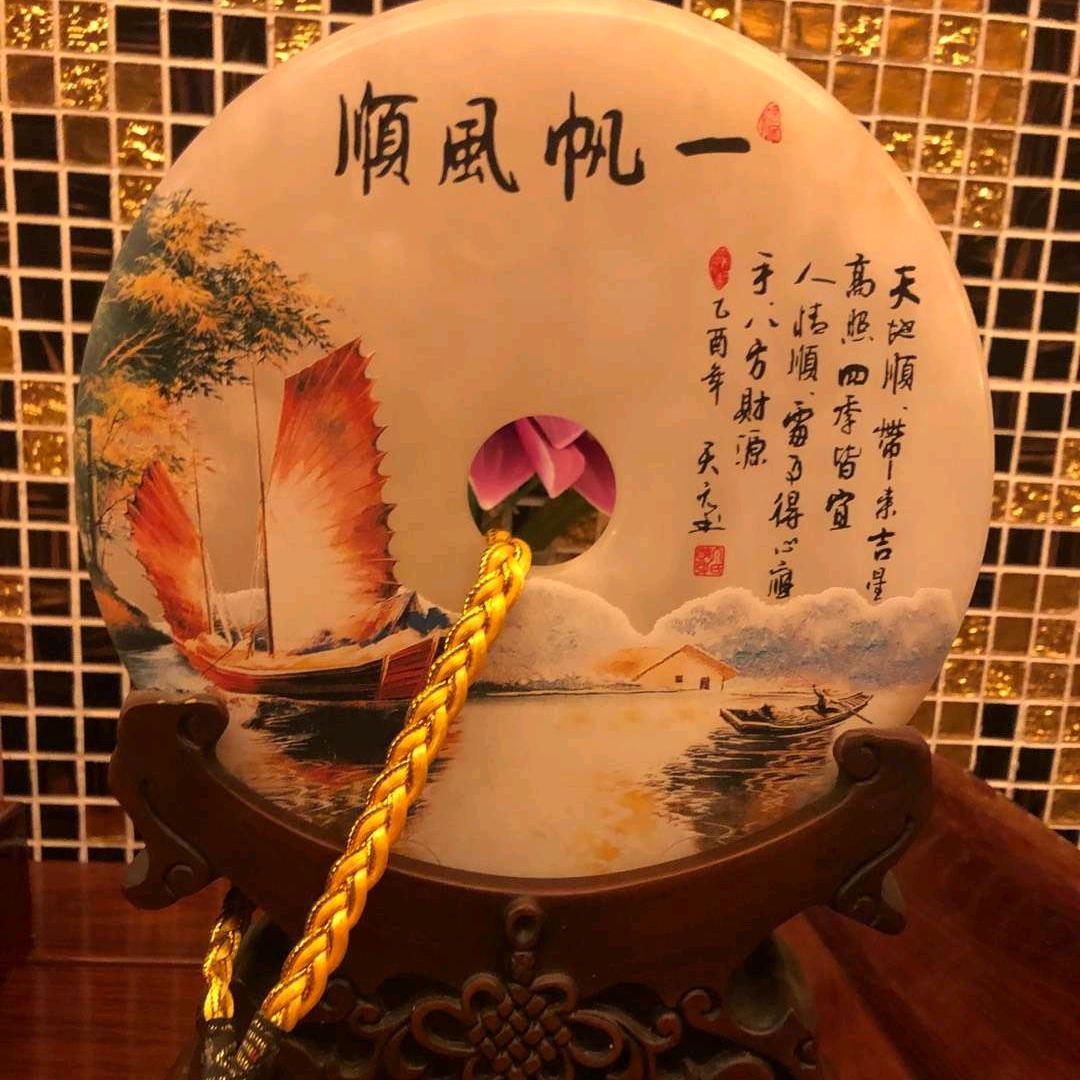 一帆風順
天地順、帶來吉星
高照四季皆宜
人情順、得心應
手、八方財源
乙酉年